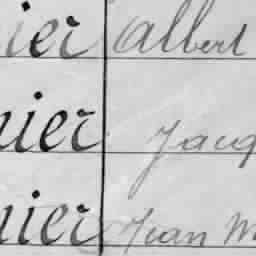 ier Albert
nier Jacq
nier Jean M